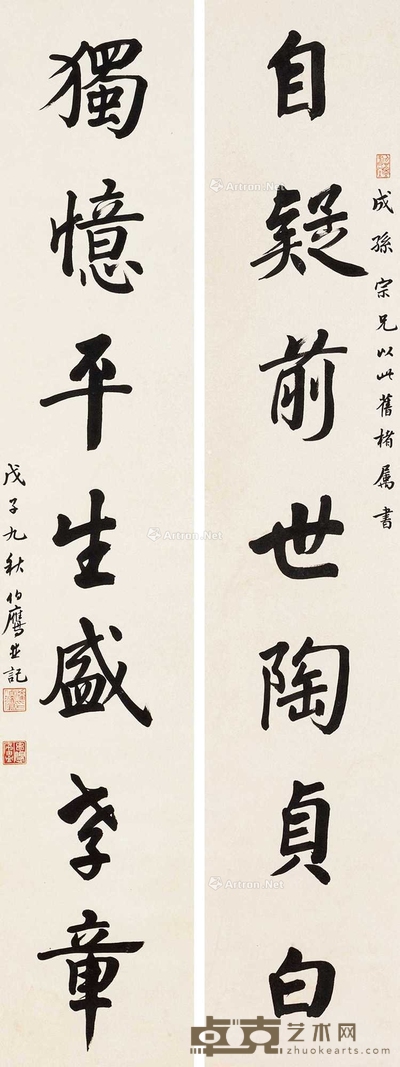 成孫宗兄以此舊楮屬書
自疑前世陶貞白
獨憶平生盛孝章
戊子九秋伯鷹並記
Artron.Net
Artron.Net
Artron.Net
卓克艺术网
zhuokearts.com